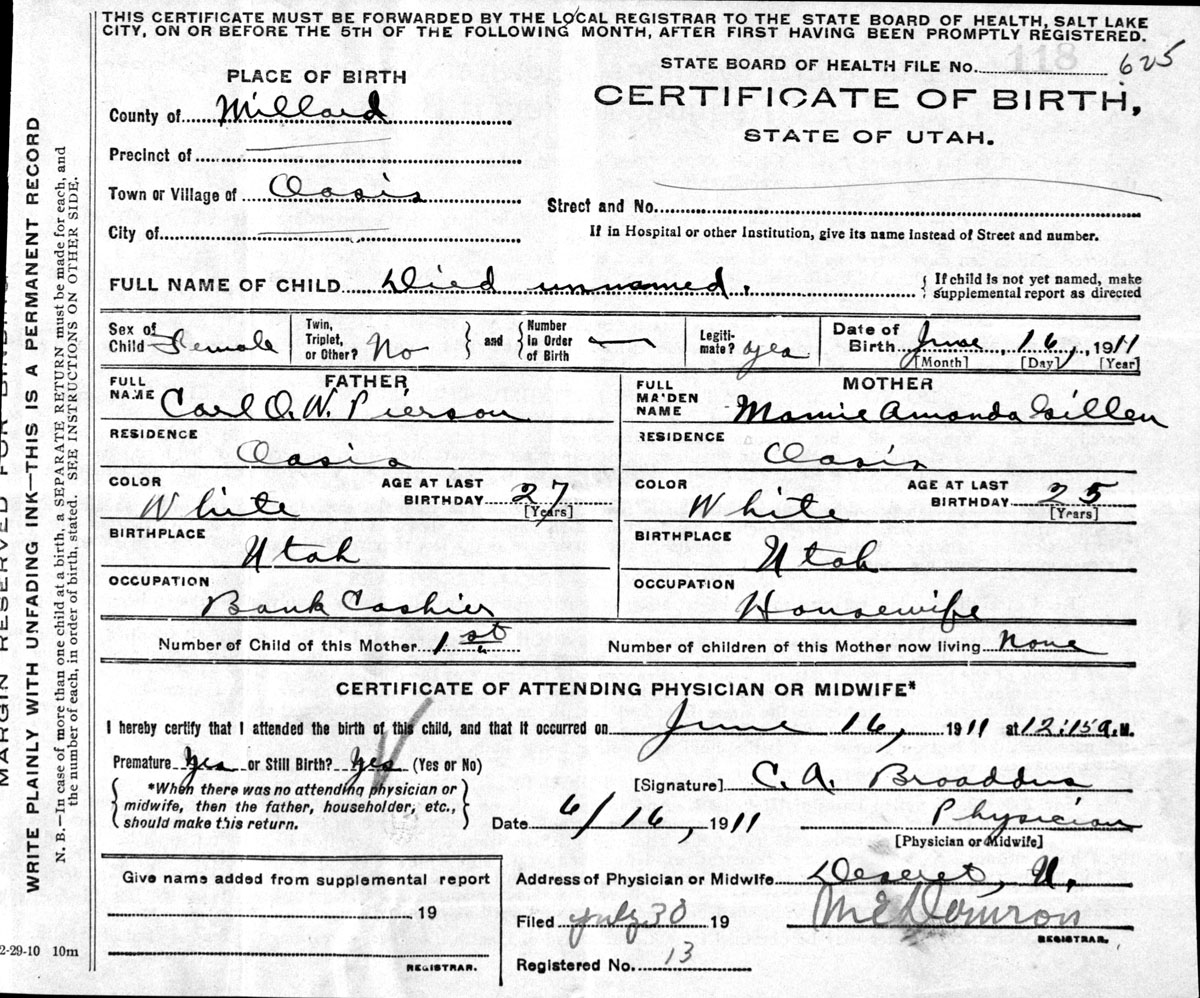 THIS CERTIFICATE MUST BE FORWARDED BY THE LOCAL REGISTRAR TO THE STATE BOARD OF HEALTH, SALT LAKE
CITY, ON OR BEFORE THE 5TH OF THE FOLLOWING MONTH, AFTER FIRST HAVING BEEN PROMPTLY REGISTERED.
STATE BOARD OF HEALTH FILE No. 118 625
PLACE OF BIRTH
CERTIFICATE OF BIRTH,
STATE OF UTAH.
County of Millard
Precinct of
Town or Village of Oasis
Street and No.
City of
If in Hospital or other Institution, give its name instead of Street and number.
FULL NAME OF CHILD Died unnamed. { If child is not yet named, make
supplemental report as directed
Sex of Child Female Twin, Triplet, or Other? No } and { Number In Order of Birth — Legiti-mate? yes Date of Birth June, 16, 1911
[Month] [Day] [Year]
FATHER MOTHER
FULL NAME Carl O. W. Pierson FULL MAIDEN NAME Mamie Amanda Gillen
RESIDENCE Oasis RESIDENCE Oasis
COLOR White AGE AT LAST BIRTHDAY 27 [Years] COLOR White AGE AT LAST BIRTHDAY 25 [Years]
BIRTHPLACE Utah BIRTHPLACE Utah
OCCUPATION Bank Cashier OCCUPATION Housewife
Number of Child of this Mother 1st Number of children of this Mother now living None
CERTIFICATE OF ATTENDING PHYSICIAN OR MIDWIFE*
I hereby certify that I attended the birth of this child, and that it occurred on June 16, 1911 at 12:15 a.M.
Premature Yes or Still Birth? Yes (Yes or No)
[Signature] C. A. Broaddus
*When there was no attending physician or
midwife, then the father, householder, etc.,
should make this return.
Date 6/16, 1911 Physician
[Physician or Midwife]
Give name added from supplemental report
19
REGISTRAR.
Address of Physician or Midwife Deseret, U.
Filed July 30 19
REGISTRAR.
Registered No. 13
MARGIN RESERVED FOR BINDING
WRITE PLAINLY WITH UNFADING INK—THIS IS A PERMANENT RECORD
N. B.—In case of more than one child at a birth, a SEPARATE RETURN must be made for each, and
the number of each, in order of birth, stated. SEE INSTRUCTIONS ON OTHER SIDE.
2-29-10 10m